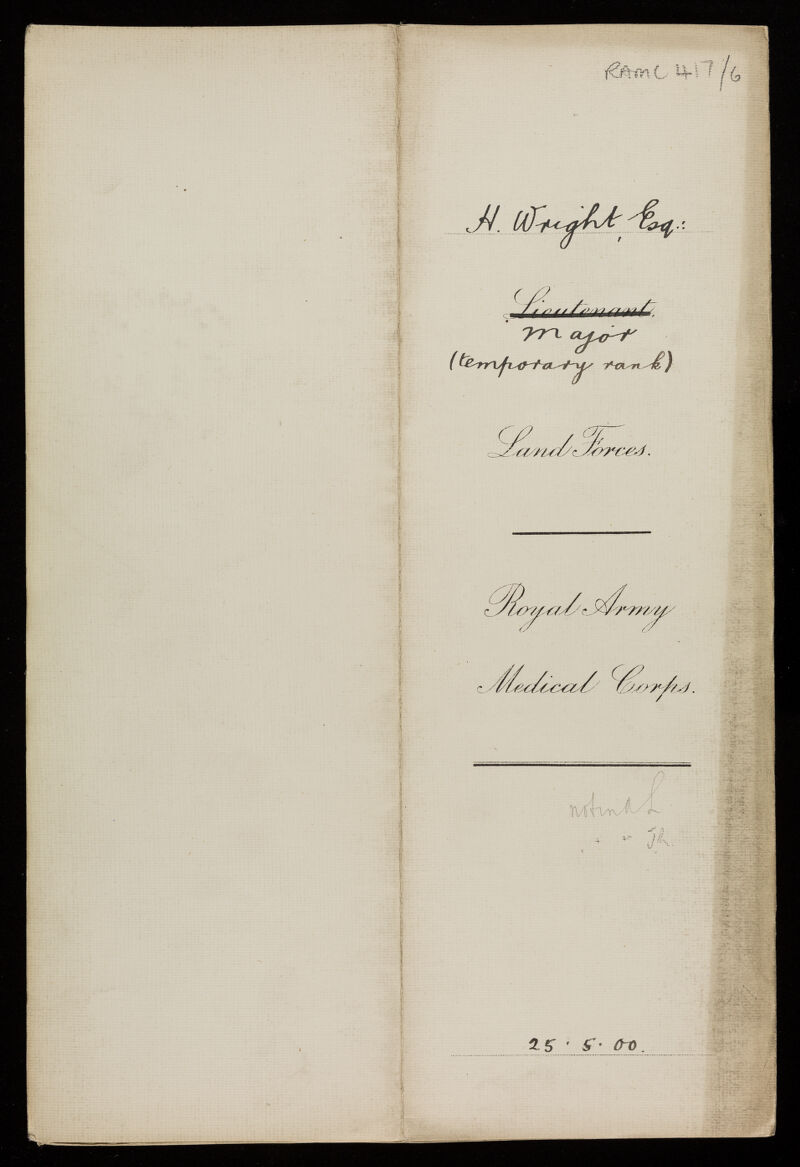 RAMC 417/6
H. Wright, Esq.:
Lieutenant.
Major
(temporary rank)
Land Forces.
Royal Army
Medical Corps.
25 . 5 . 00.